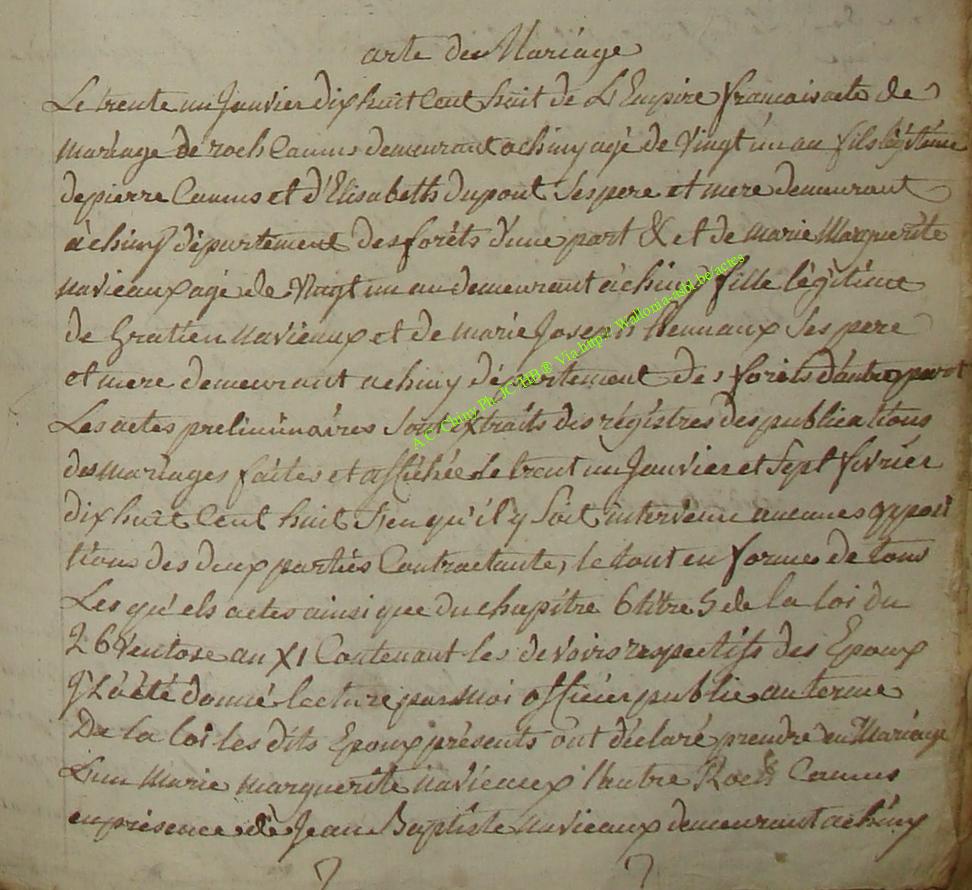 acte de Mariage
Le trente un Janvier dix huit Cent huit de L'Empire francais acte de
mariage de roch Camus demeurant a chiny agé de Vingt un an fils légitime
de pierre Camus et d'Elisabeth dupont Ses pere et mere demeurant
à chiny département des forêts d'une part & et de marie Marguerite
navieaux agé de Vingt un an demeurant à chiny fille légitime
de Gratien naviaux et de marie Joseph hennaux Ses pere
et mere demeurant a chiny département des forêts d'autre part
Les actes preliminaires Sont extraits des régistres des publications
des mariages faites et affichée Le trent un Janvier et Sept fevrier
dix huit Cent huit Sien qu'il y Soit intervenu aucunes opposi
tions des deux parties Contractante, le tout en formes de tous
Les qu'els actes ainsi que du chapitre 6 titre 5 de la loi du
26 Ventose an XI Contenant les devoirs respectifs des Epoux
Il à été donné lecture par moi officier public au terme
De la loi les dits Epoux présents ont déclaré prendre en Mariage
L'un Marie marguerite navieaux l'autre Roch Camus
en présence de Jean Baptiste naviaux demeurant a chiny
A C Chiny Ph JC HB ® Via http: Wallonia-asbl.be/actes